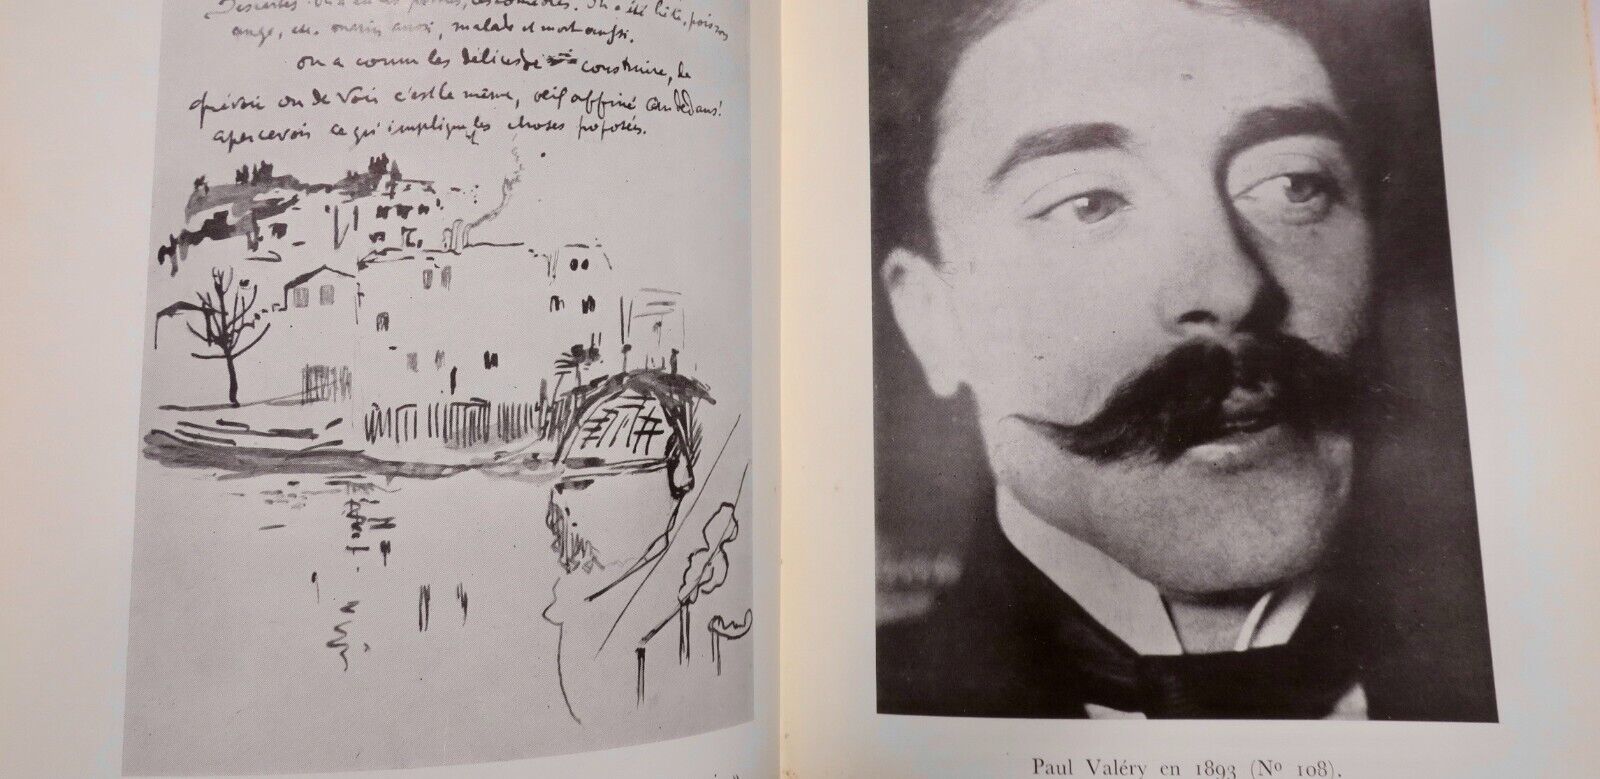 Descartes. On a été poisson
ange, etc. marin aussi, malade et mort aussi.
on a connu les délices de construire, de
prévoir ou de voir c'est le même, œil affiné au dedans!
apercevoir ce qu'impliquent les choses posées.
Paul Valéry en 1893 (Nº 108).